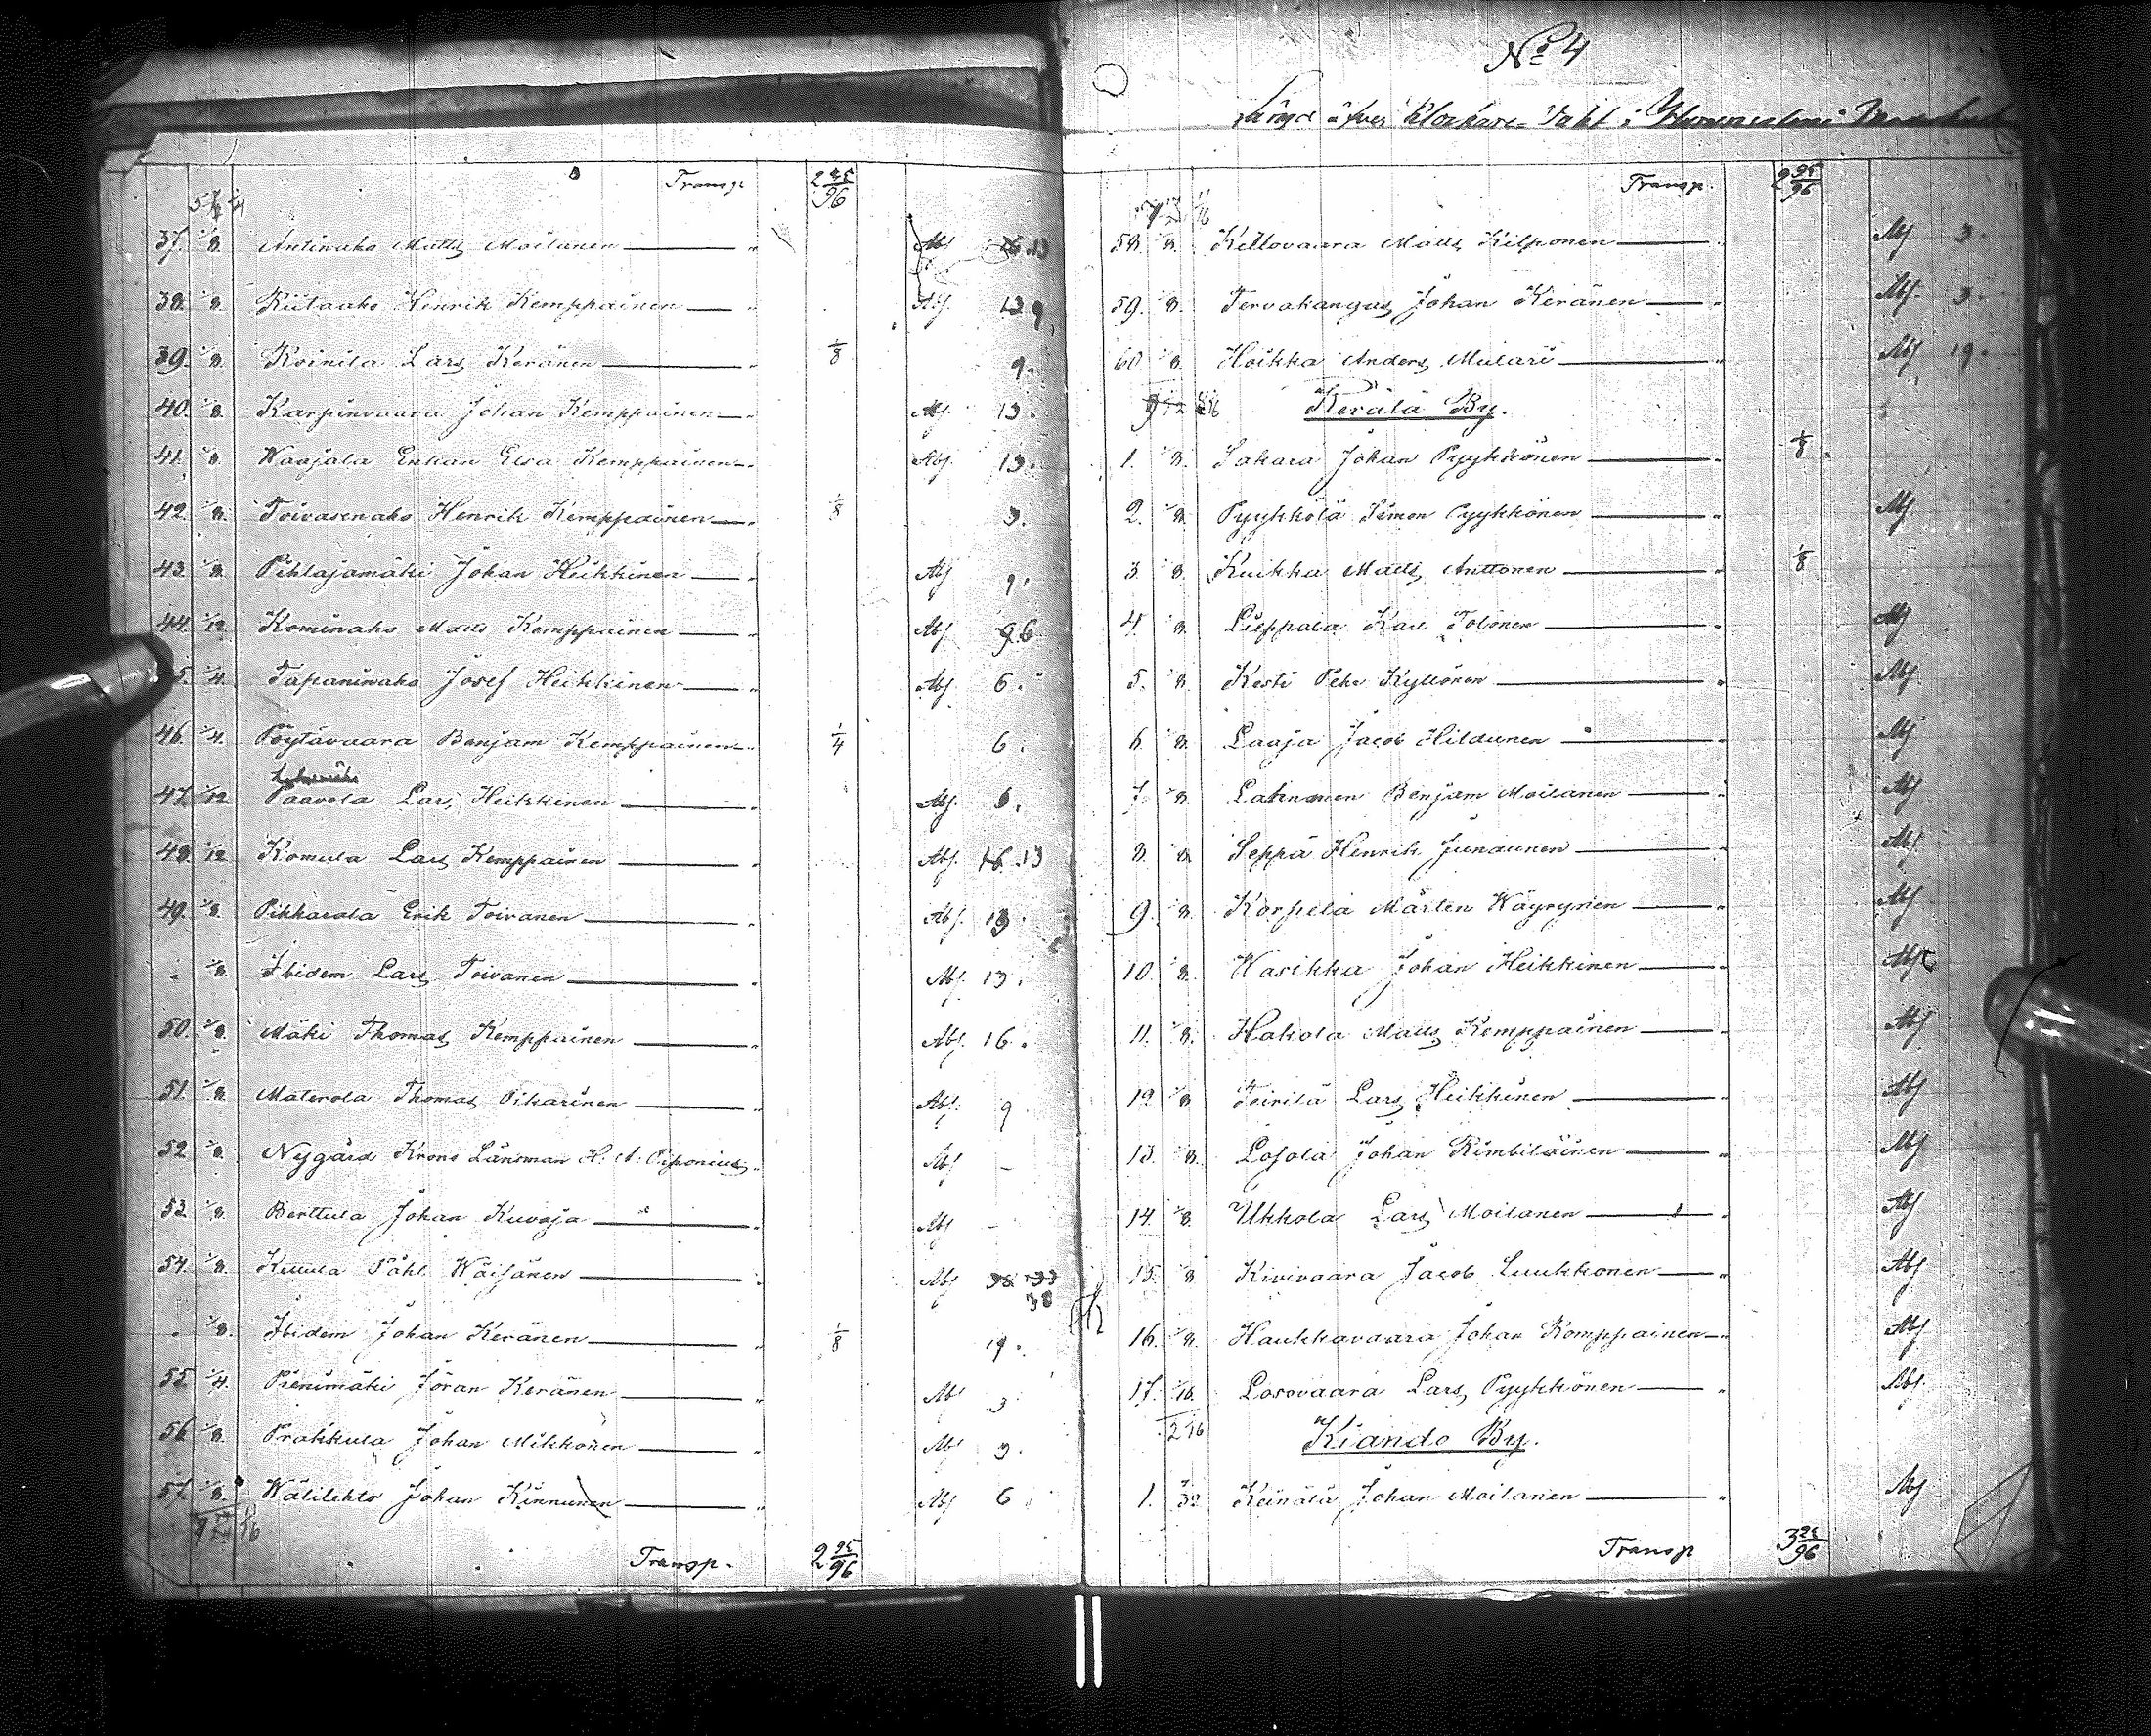 Transp. 2 95/96
37. 1/8. Antinaho Matts Moilanen — " Abf 13
38. 1/8. Riitaaho Henrik Kemppainen — " Abf. 9
39. 1/8. Koinila Lars Keränen — " 1/8 9.
40. 1/8. Karpinvaara Johan Kemppainen — " Abf 13.
41. 1/8. Waajala Enkan Elsa Kemppainen — " Abf. 13.
42. 1/8. Toivasenaho Henrik Kemppainen — " 1/8 3.
43. 1/8. Pihlajamäki Johan Heikkinen — " Abf 9.
44. 1/12. Kominaho Matts Kemppainen — " Abf 9 6
5. 1/4. Tapaninaho Josef Heikkinen — " Abf. 6.
46. 1/4. Pöytävaara Benjam Kemppainen — " 1/4 6.
47. 1/12. Paavola Lars Heikkinen — " Abf. 6.
48. 1/12 Komula Lars Kemppainen — " Abf. 16. 13
49. 1/8. Pikkarala Erik Toivanen — " Abf. 13.
" 1/8. Ibidem Lars Toivanen — " Abf. 13.
50. 1/8. Mäki Thomas Kemppainen — " Abf. 16.
51. 1/8. Materola Thomas Pikarinen — " Abf. 9
52 1/8. Nygård Krono Länsman H. A. Piponius " Abf —
53. 1/8. Berttula Johan Kuvaja — " Abf —
54. 1/8. Kettula Påhl Wäisänen — " Abf 38 33
38
" 1/8. Ibidem Johan Keränen — " 1/8 19.
55 1/4. Pienimäki Jöran Keränen — " Abf 3.
56 1/8. Prakkula Johan Mikkonen — " Abf 3.
57. 1/8. Wälilehto Johan Kinnunen — " Abf 6
Transp. 2 95/96
No 4
Längd öfver Klockare- Takt i
Transp. 2 95/96
58. 1/8. Keltovaara Matts Kilponen — " Abf 3.
59. 1/8. Tervakangas Johan Keränen — " Abf. 3.
60. 1/8. Hoikka Anders Mulari — " Abf 19.
Kerälä By.
1. 1/8. Sakara Johan Pyykkönen — " 1/8
2. 1/8. Pyykkölä Simon Pyykkönen — " Abf
3. 1/8. Kuikka Matts Anttonen — " 1/8
4. 1/8. Lieppala Karl Tolonen — " Abf
5. 1/8. Kesti Pehr Kyllönen — " Abf
6. 1/8. Laaja Jacob Hildunen — " Abf
7. 1/8. Lahnanen Benjam Moilanen — " Abf
8. 1/8. Seppä Henrik Jundunen — " Abf.
9. 1/8. Korpela Mårten Wäyrynen — " Abf
10. 1/8. Wasikka Johan Heikkinen — " Abf
11. 1/8. Hakola Matts Kemppainen — " Abf
12 1/8 Toirila Lars Heikkinen — " Abf
13. 1/8. Losola Johan Kimbiläinen — " Abf
14. 1/8. Ukkola Lars Moilanen — " Abf
15. 1/8 Kivivaara Jacob Luukkonen — " Abf
16. 1/8. Haukkavaara Johan Komppainen — " Abf
17. 1/16. Losovaara Lars Pyykkönen — " Abf.
Kiando By.
1. Keinälä Johan Moilanen — " Abf
Transp